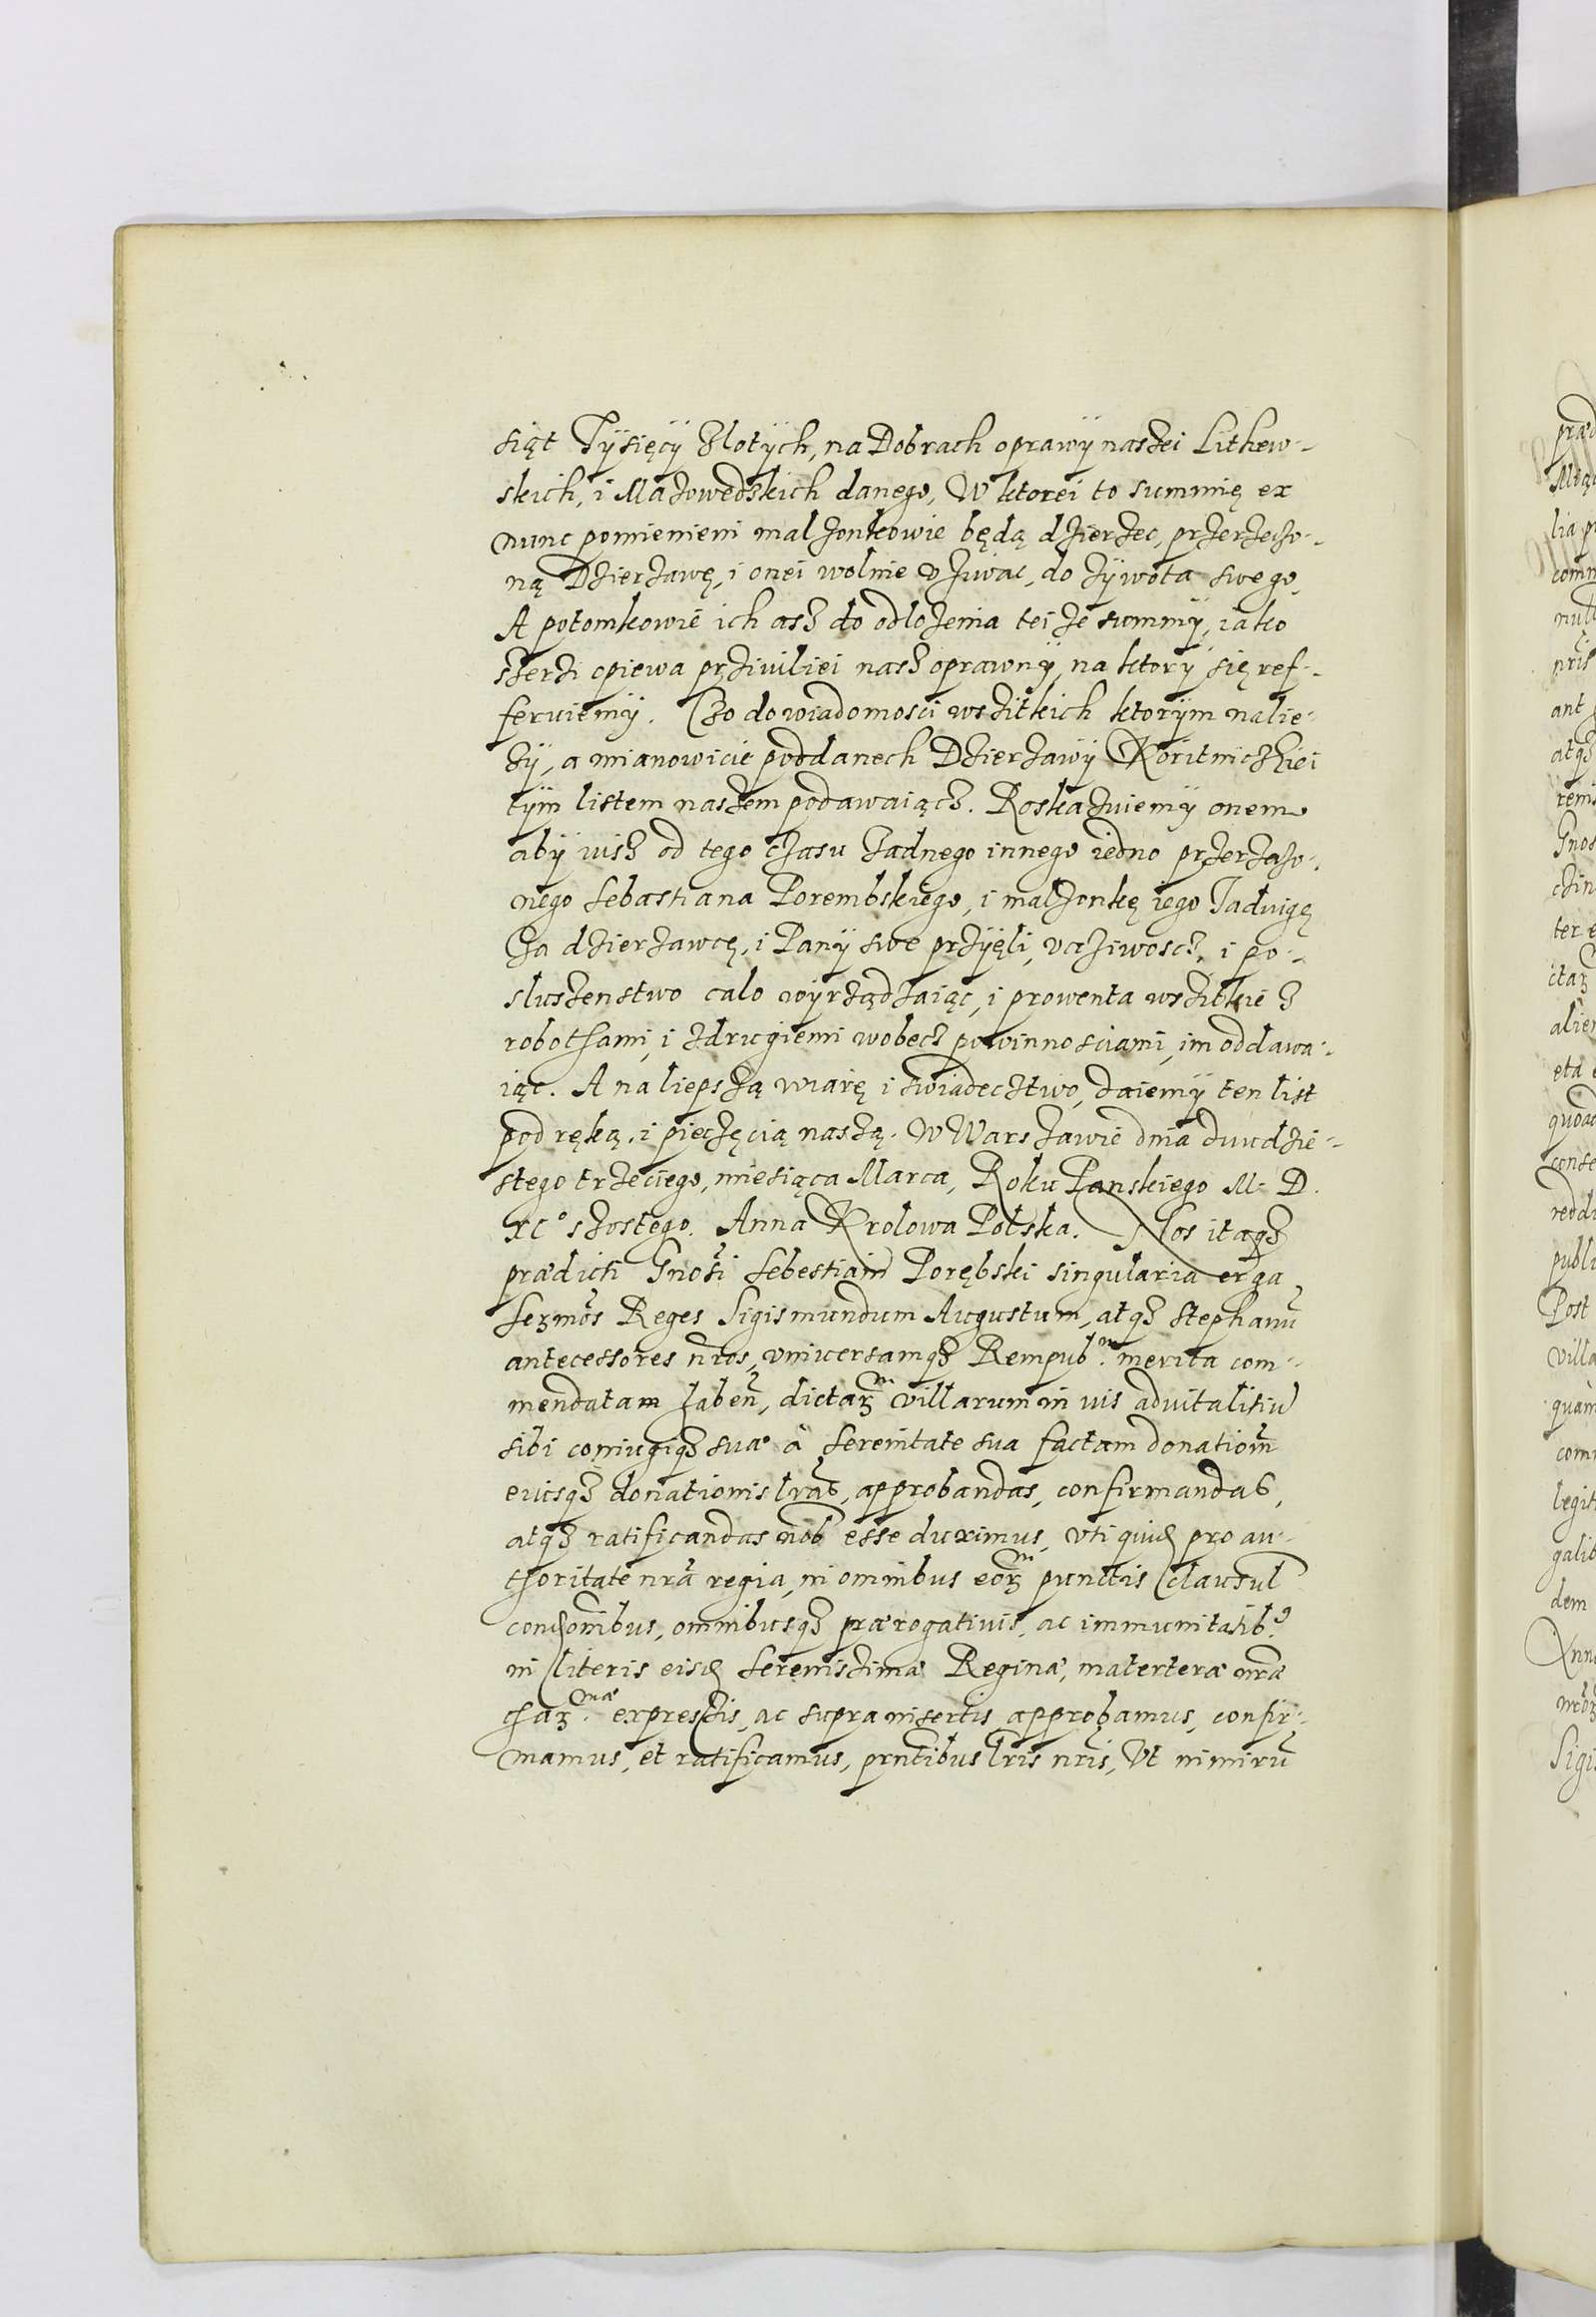 siąt Tysięcy Złotych, na Dobrach oprawy naszei Lithew-
skich, i Mazowedskich danego, W ktorei to summię ex
nunc pomienieni malzonkowie będą dzierzec, przerzeczo-
ną Dzierzawę, i onei wolnie uzuwac, do zywota swego,
A potomkowie ich asz do odlozenia tei ze summy, iako
szerzi opiewa prziwiliei nasz oprawny, na ktory się ref-
feruiemy. Czo do wiadomosci wszitkich ktorym nalie-
zy, a mianowicie poddanech Dzierzawy Koritniczkiei
tym listem naszem podawaiącz. Roskazuiemy onem
aby iusz od tego czasu zadnego innego iedno przerzeczo-
nego Sebastiana Porembskiego, i malzonkę iego Jadwigę
Za dzierzawcę, i Pany swe przyięli, ucziwoscz, i po-
sluszenstwo calo wyrządzaiąc, i prowenta wszitkie z
robothami, i zdrugiemi wobecz powinnosciami, im oddawa-
iąc. A na liepszą wiarę i swiadecztwo, daiemy ten list
pod ręką, i pieczęcią naszą. W Warszawie dnia dwudzie-
stego trzeciego, miesiąca Marca, Roku Panskiego M. D.
XC° szostego. Anna Krolowa Polska. Nos itaqz
prædicti Gnosi Sebestiani Porębski singularia erga
Sezmos Reges Sigismundum Augustum, atqz Stephanu
antecessores nros, universamqz Rempub.m merita com-
mendatam haben, dictaz villarum in uis advitalitiu
sibi coniugiqz suæ à Serenitate sua factam donationm
eiusqz donationis lras, approbandas, confirmandas,
atqz ratificandas nob esse duximus, uti quid pro au-
thoritate nra regia, in omnibus eoz punctis clausul
condonibus, omnibusqz prærogativis, ac immunitatib9
in literis eisd Serenissimæ Reginæ, materteræ nræ
chaz.mæ expressis, ac supra insertis approbamus, confir-
mamus, et ratificamus, prntibus lris nris, Ut nimiru